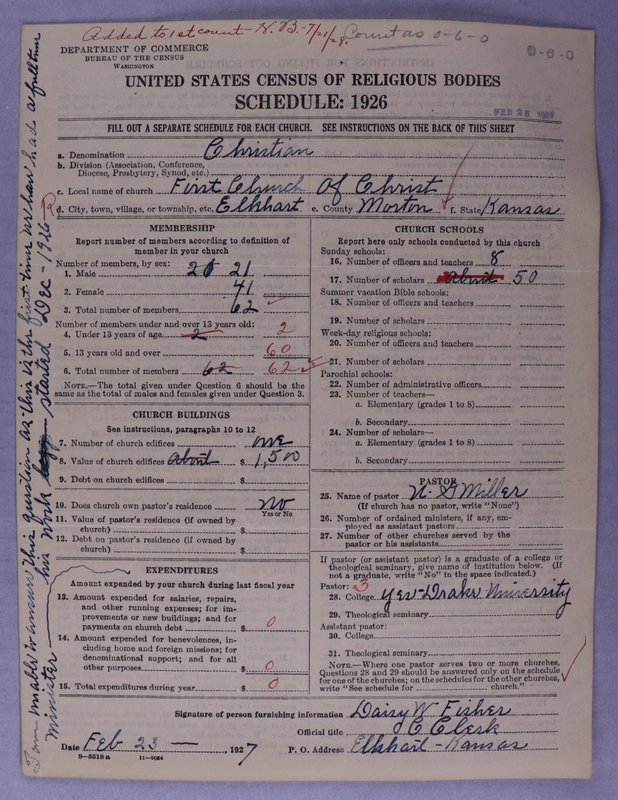 Added to 1st count - H. B. - 7/21/28.
Count as 0-6-0
0-6-0
DEPARTMENT OF COMMERCE
BUREAU OF THE CENSUS
WASHINGTON
UNITED STATES CENSUS OF RELIGIOUS BODIES
SCHEDULE: 1926
FEB 28
FILL OUT A SEPARATE SCHEDULE FOR EACH CHURCH. SEE INSTRUCTIONS ON THE BACK OF THIS SHEET
a. Denomination Christian
b. Division (Association, Conference, Diocese, Presbytery, Synod, etc.)
c. Local name of church First Church Of Christ
d. City, town, village, or township, etc. Elkhart e. County Morton f. State Kansas
MEMBERSHIP
Report number of members according to definition of
member in your church
Number of members, by sex:
1. Male 21
2. Female 41
3. Total number of members 62
Number of members under and over 13 years old:
4. Under 13 years of age 2 2
5. 13 years old and over 60
6. Total number of members 62 62
NOTE.—The total given under Question 6 should be the
same as the total of males and females given under Question 3.
CHURCH BUILDINGS
See instructions, paragraphs 10 to 12
7. Number of church edifices one
8. Value of church edifices About $ 1,500
9. Debt on church edifices $
10. Does church own pastor's residence No
Yes or No
11. Value of pastor's residence (if owned by
church) $
12. Debt on pastor's residence (if owned by
church) $
EXPENDITURES
Amount expended by your church during last fiscal year
13. Amount expended for salaries, repairs,
and other running expenses; for im-
provements or new buildings; and for
payments on church debt $ 0
14. Amount expended for benevolences, in-
cluding home and foreign missions; for
denominational support; and for all
other purposes $ 0
15. Total expenditures during year $ 0
CHURCH SCHOOLS
Report here only schools conducted by this church
Sunday schools:
16. Number of officers and teachers 8
17. Number of scholars About 50
Summer vacation Bible schools:
18. Number of officers and teachers
19. Number of scholars
Week-day religious schools:
20. Number of officers and teachers
21. Number of scholars
Parochial schools:
22. Number of administrative officers
23. Number of teachers—
a. Elementary (grades 1 to 8)
b. Secondary
24. Number of scholars—
a. Elementary (grades 1 to 8)
b. Secondary
PASTOR
25. Name of pastor Miller
(If church has no pastor, write "None")
26. Number of ordained ministers, if any, em-
ployed as assistant pastors
27. Number of other churches served by the
pastor or his assistants
If pastor (or assistant pastor) is a graduate of a college or
theological seminary, give name of institution below. (If
not a graduate, write "No" in the space indicated.)
Pastor: 3
28. College yes-Drake University
29. Theological seminary
Assistant pastor:
30. College
31. Theological seminary
NOTE.—Where one pastor serves two or more churches,
Questions 28 and 29 should be answered only on the schedule
for one of the churches; on the schedules for the other churches,
write "See schedule for church."
Signature of person furnishing information Daisy W. Fisher
Official title C Clerk
Date Feb 23 — , 1927 P. O. Address Elkhart - Kansas
8-5518a 11-9054
I am unable to answer this question as this is the first time we have had a full time
Minister — his work started Dec - 1926